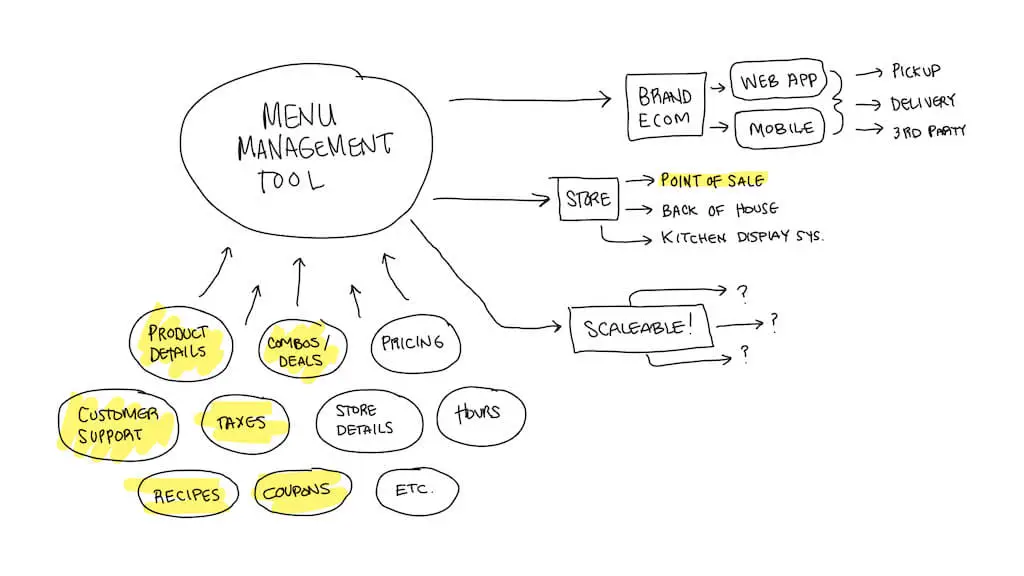 MENU
MANAGEMENT
TOOL
BRAND
ECOM
WEB APP
MOBILE
PICKUP
DELIVERY
3RD PARTY
STORE
POINT OF SALE
BACK OF HOUSE
KITCHEN DISPLAY SYS.
SCALEABLE!
?
?
?
PRODUCT
DETAILS
COMBOS/
DEALS
PRICING
CUSTOMER
SUPPORT
TAXES
STORE
DETAILS
HOURS
RECIPES
COUPONS
ETC.